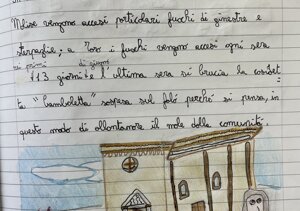 Molise vengono accesi particolari fuochi di ginestre e
sterpaglie; a loro i fuochi vengono accesi ogni sera
nei primi di giugno
13 giorni e l'ultima sera si brucia la cosidet
ta "bamboletta" sospesa sul falò perché si pensa, in
questo modo di allontanare il male dalla comunità.